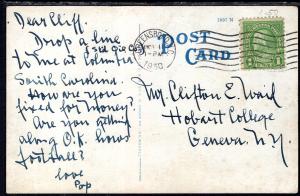 Dear Cliff.
Drop a line
to me at Columbia
South Carolina.
How are you
fixed for money?
Are you getting
along O.K. hows
football?
love
Pop
POST
CARD
GREENSBORO, N.C.
1930
Mr. Clifton E. Ward
Hobart College
Geneva. N.Y.